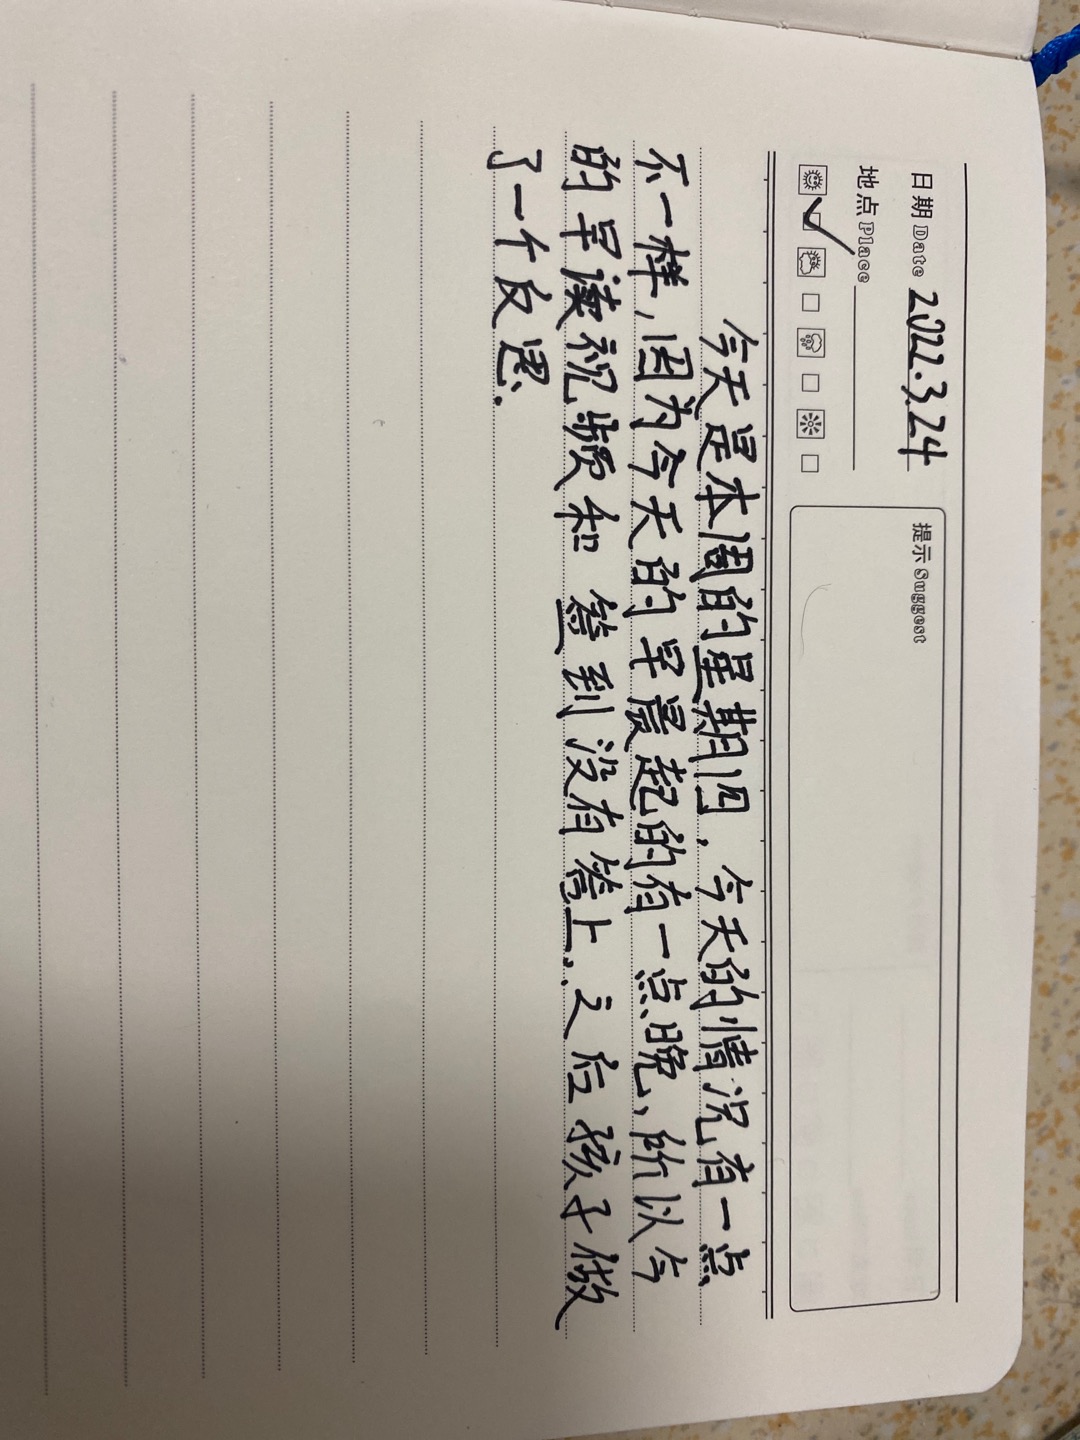 日期 Date 2022.3.24
提示 Suggest
地点 Place
今天是本周的星期四，今天的情况有一点
不一样，因为今天的早晨起的有一点晚，所以今
的早读视频和签到没有签上，之后孩子做
了一个反思.